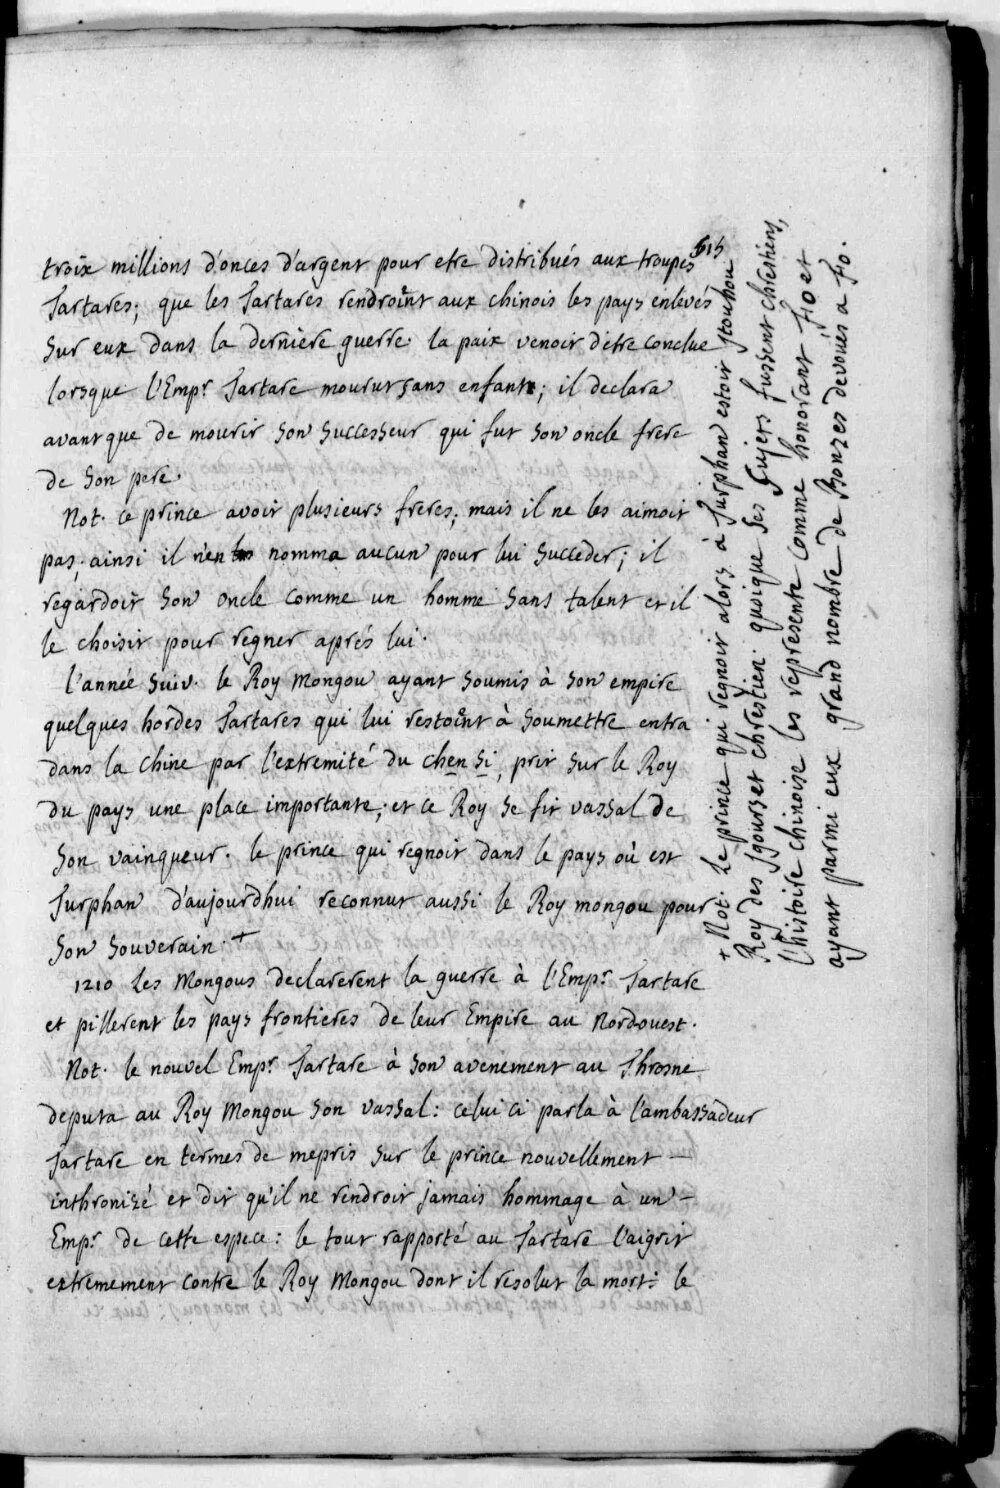 515
troix millions d'onces d'argent pour etre distribués aux troupes
Tartares; que les Tartares rendroint aux chinois les pays enlevés
sur eux dans la dernière guerre. la paix venoit d'etre conclue
lorsque l'Emp.r Tartare mourut sans enfant; il declara
avant que de mourir son successeur qui fut son oncle frere
de son pere.
Not. ce prince avoit plusieurs freres; mais il ne les aimoit
pas; ainsi il n'en nomma aucun pour lui succeder; il
regardoit son oncle comme un homme sans talent et il
le choisit pour regner aprés lui.
l'année suiv. le Roy Mongou ayant soumis à son empire
quelques hordes Tartares qui lui restoint à soumettre entra
dans la Chine par l'extremité du chen si, prit sur le Roy
du pays une place importante; et ce Roy se fit vassal de
son vainqueur. le prince qui regnoit dans le pays où est
Turphan d'aujourdhui reconnut aussi le Roy mongou pour
son souverain. +
1210 Les Mongous declarerent la guerre à l'Emp.r Tartare
et pillerent les pays frontieres de leur Empire au Nordouest.
Not. le nouvel Emp.r Tartare à son avenement au Throsne
deputa au Roy Mongou son vassal: celui ci parla à l'ambassadeur
Tartare en termes de mepris sur le prince nouvellement —
inthronizé et dit qu'il ne rendroit jamais hommage à un —
Emp.r de cette espece: le tout rapporté au Tartare l'aigrit
extremement contre le Roy Mongou dont il resolut la mort: le
+ Not. Le prince qui regnoit alors à Turphan estoit Itouhou
Roy des Igours et chrestien. quoique ses sujets fussent chrestiens,
l'histoire chinoise les represente comme honorant Fo et
ayant parmi eux grand nombre de Bonzes devoués a Fo.